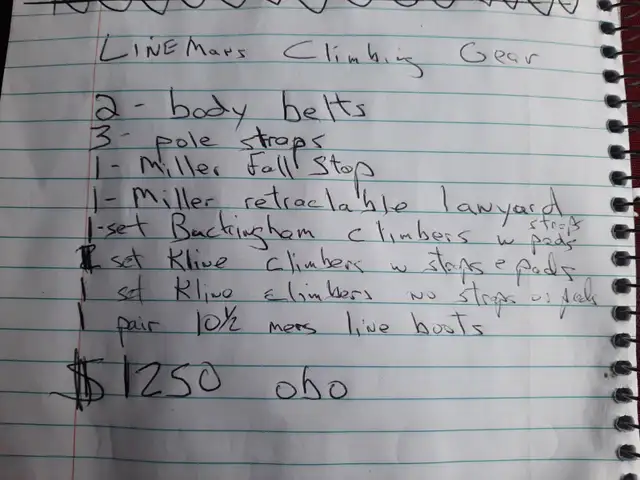 LINEMans Climbing Gear
2 - body belts
3 - pole straps
1 - Miller fall stop
1 - Miller retractable lanyard
1 - set Buckingham climbers w straps pads
1 set Kline climbers w staps e pads
1 set Kline climbers no straps or pads
1 pair 10½ mens line boots
$1250 obo